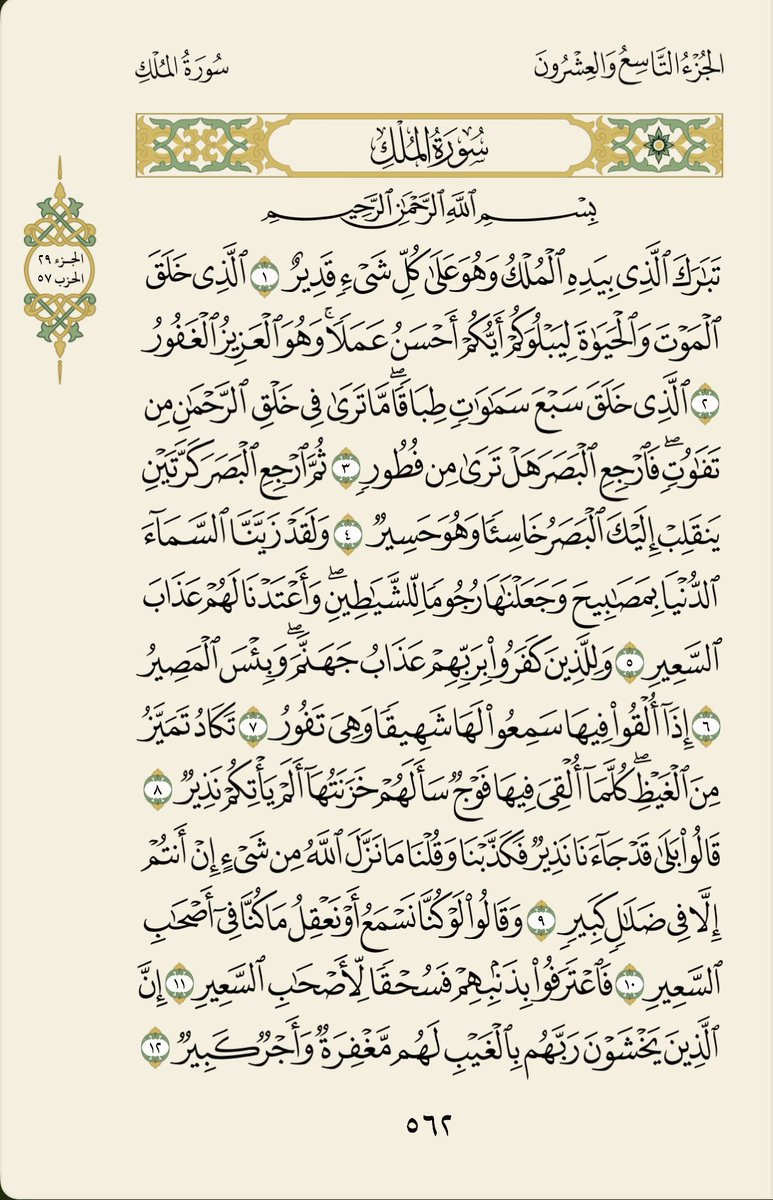 الجُزْءُ التَّاسِعُ وَالعِشْرُونَ
سُورَةُ المُلْكِ
سُورَةُ المُلْكِ
بِسْمِ ٱللَّهِ ٱلرَّحْمَٰنِ ٱلرَّحِيمِ
الجزء ٢٩
الحزب ٥٧
تَبَٰرَكَ ٱلَّذِى بِيَدِهِ ٱلْمُلْكُ وَهُوَ عَلَىٰ كُلِّ شَىْءٍ قَدِيرٌ ١ ٱلَّذِى خَلَقَ
ٱلْمَوْتَ وَٱلْحَيَوٰةَ لِيَبْلُوَكُمْ أَيُّكُمْ أَحْسَنُ عَمَلًا ۚ وَهُوَ ٱلْعَزِيزُ ٱلْغَفُورُ
٢ ٱلَّذِى خَلَقَ سَبْعَ سَمَٰوَٰتٍ طِبَاقًا ۖ مَّا تَرَىٰ فِى خَلْقِ ٱلرَّحْمَٰنِ مِن
تَفَٰوُتٍ ۖ فَٱرْجِعِ ٱلْبَصَرَ هَلْ تَرَىٰ مِن فُطُورٍ ٣ ثُمَّ ٱرْجِعِ ٱلْبَصَرَ كَرَّتَيْنِ
يَنقَلِبْ إِلَيْكَ ٱلْبَصَرُ خَاسِئًا وَهُوَ حَسِيرٌ ٤ وَلَقَدْ زَيَّنَّا ٱلسَّمَآءَ
ٱلدُّنْيَا بِمَصَٰبِيحَ وَجَعَلْنَٰهَا رُجُومًا لِّلشَّيَٰطِينِ ۖ وَأَعْتَدْنَا لَهُمْ عَذَابَ
ٱلسَّعِيرِ ٥ وَلِلَّذِينَ كَفَرُوا۟ بِرَبِّهِمْ عَذَابُ جَهَنَّمَ ۖ وَبِئْسَ ٱلْمَصِيرُ
٦ إِذَآ أُلْقُوا۟ فِيهَا سَمِعُوا۟ لَهَا شَهِيقًا وَهِىَ تَفُورُ ٧ تَكَادُ تَمَيَّزُ
مِنَ ٱلْغَيْظِ ۖ كُلَّمَآ أُلْقِىَ فِيهَا فَوْجٌ سَأَلَهُمْ خَزَنَتُهَآ أَلَمْ يَأْتِكُمْ نَذِيرٌ ٨
قَالُوا۟ بَلَىٰ قَدْ جَآءَنَا نَذِيرٌ فَكَذَّبْنَا وَقُلْنَا مَا نَزَّلَ ٱللَّهُ مِن شَىْءٍ إِنْ أَنتُمْ
إِلَّا فِى ضَلَٰلٍ كَبِيرٍ ٩ وَقَالُوا۟ لَوْ كُنَّا نَسْمَعُ أَوْ نَعْقِلُ مَا كُنَّا فِىٓ أَصْحَٰبِ
ٱلسَّعِيرِ ١٠ فَٱعْتَرَفُوا۟ بِذَنۢبِهِمْ فَسُحْقًا لِّأَصْحَٰبِ ٱلسَّعِيرِ ١١ إِنَّ
ٱلَّذِينَ يَخْشَوْنَ رَبَّهُم بِٱلْغَيْبِ لَهُم مَّغْفِرَةٌ وَأَجْرٌ كَبِيرٌ ١٢
٥٦٢